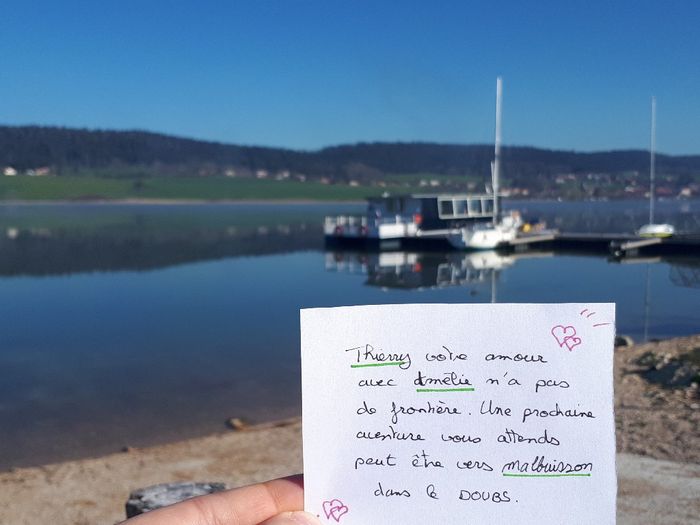 Thierry votre amour
avec Amélie n'a pas
de frontière. Une prochaine
aventure vous attends
peut être vers malbuisson
dans le DOUBS.